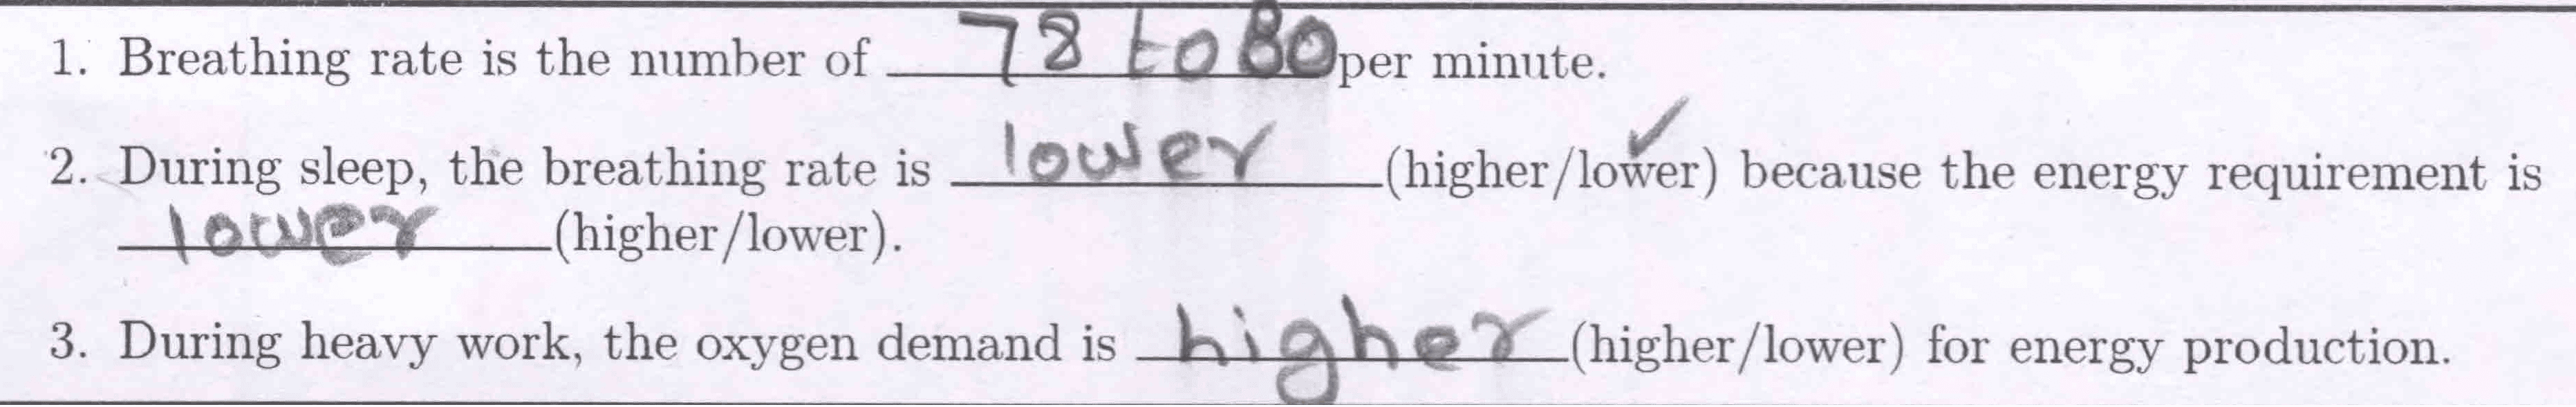 1. Breathing rate is the number of 78 to 80 per minute.
2. During sleep, the breathing rate is lower (higher/lower) because the energy requirement is
lower (higher/lower).
3. During heavy work, the oxygen demand is higher (higher/lower) for energy production.